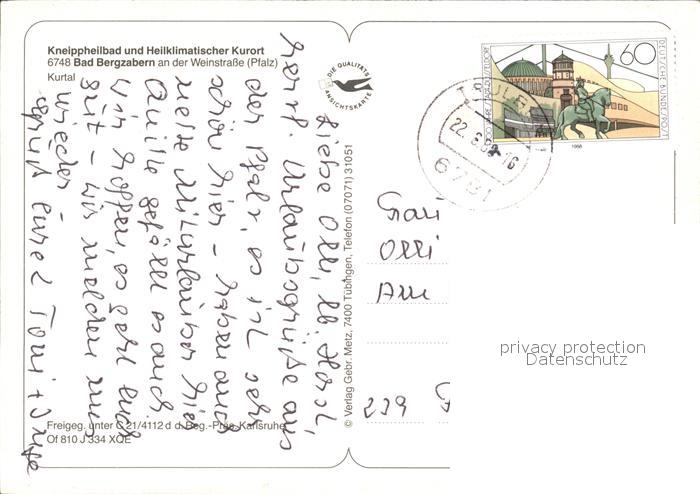 Kneippheilbad und Heilklimatischer Kurort
6748 Bad Bergzabern an der Weinstraße (Pfalz)
Kurtal
DIE QUALITÄTS
ANSICHTSKARTE
Liebe Olli, lb. Horst,
herzl. Urlaubsgrüße aus
der Pfalz, es ist sehr
schön hier – haben auch
nette Miturlauber hier
Quille gefällt es auch,
wir hoffen, es geht Euch
gut – wir melden uns
wieder
Gruß Eure Toni + Inge
© Verlag Gebr. Metz, 7400 Tübingen, Telefon (07071) 31051
Freigeg. unter C 21/4112 d d. Reg.-Präs. Karlsruhe
Of 810 J 334 XOE
60
DEUTSCHE BUNDESPOST
1988
6791
Frau
Olli
Am
239
privacy protection
Datenschutz